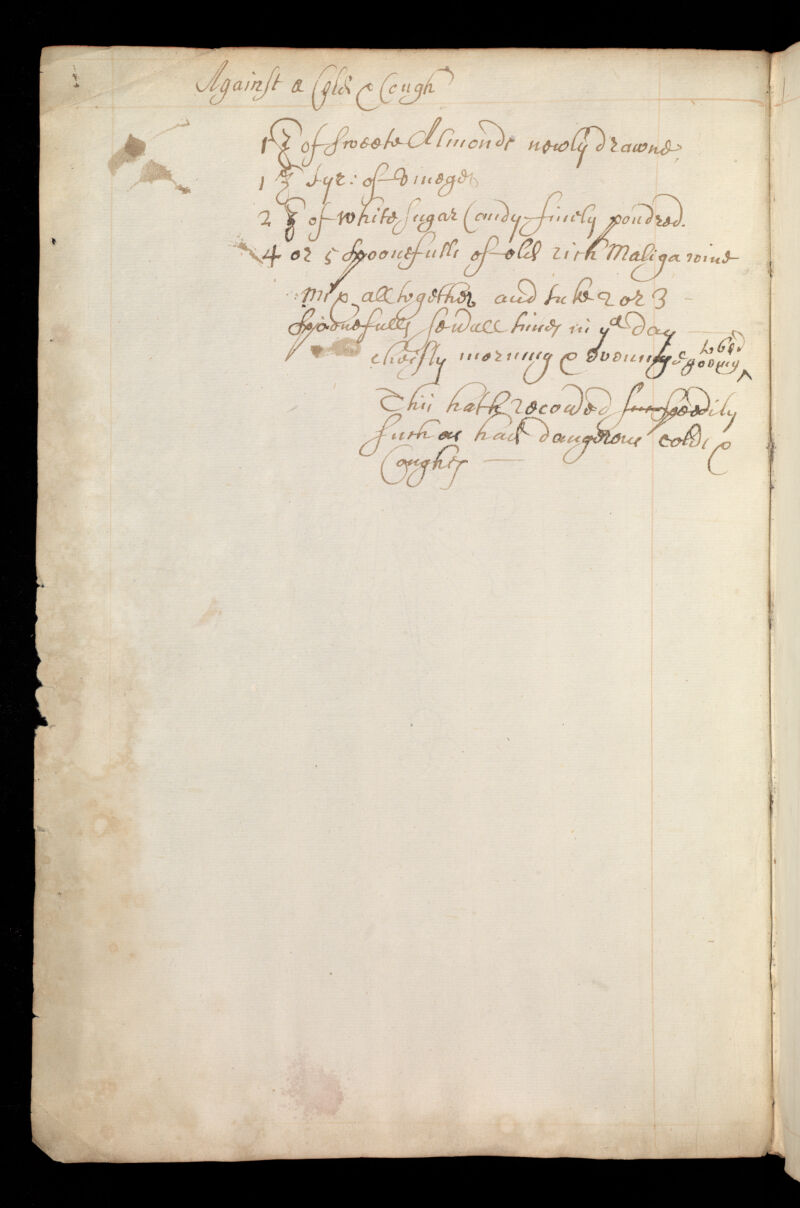 Against a Cold & Cough
1 ℥ of sweete Almonds newly drawne,
1 ℥ Syr: of Vineger
2 ℥ of white sugar Candy finely poudred.
4 or 5 spoonefulls of old rich Maliga wine
Mix all together and take 2 or 3
spoonefulls severall times in yᵉ day
cheifly morning & evening & goeing ^ to bed
This hath recovered speedily
such as had dangerous colds &
Coughes